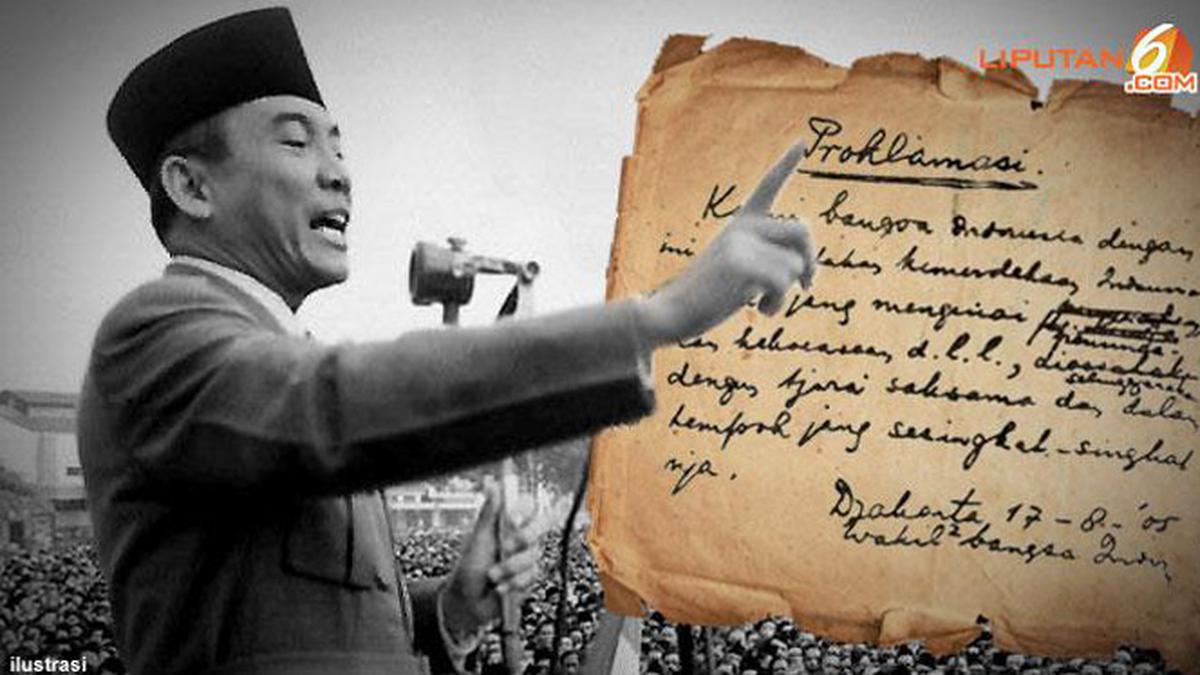 LIPUTAN 6
.COM
Proklamasi.
bangsa Indonesia dengan
ini kemerdekaan
jang mengenai
kekoeasaan d.l.l.,
dengan tjara saksama dan dalam
tempoh jang sesingkat-singkat
nja.
Djakarta, 17 - 8 - '05
Wakil² bangsa
ilustrasi